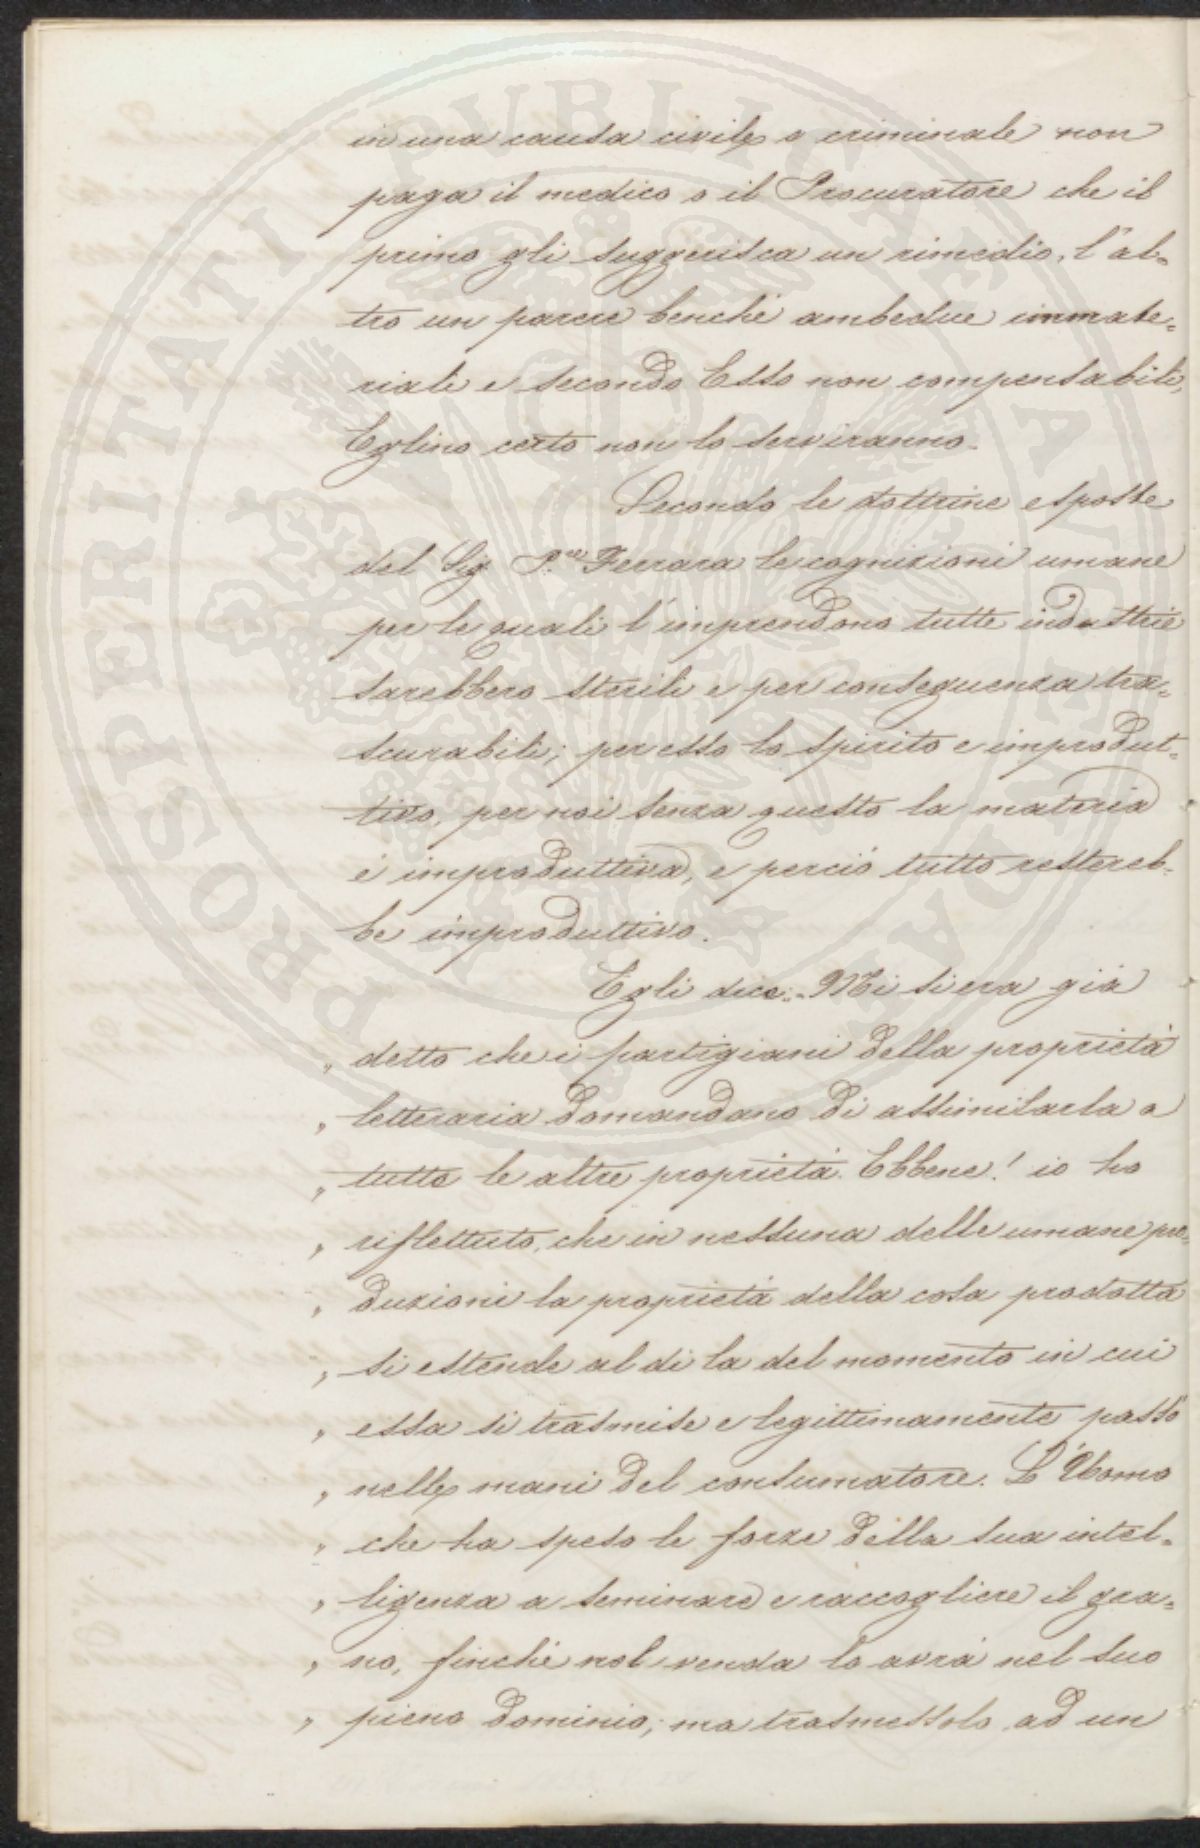 in una causa civile o criminale non
paga il medico o il Procuratore che il
primo gli suggerisca un rimedio, l'al=
tro un parere benché ambedue immate=
riali e secondo Esso non compensabili,
Eglino certo non lo serviranno.
Secondo le dottrine esposte
del Sig. P.re Ferrara le cognizioni umane
per le quali s'imprendono tutte industrie
sarebbero sterili e per conseguenza tra=
scurabili; per esso lo spirito e improdut=
tivo, per noi senza questo la materia
é improduttiva, e perció tutto restereb=
be improduttivo.
Egli dice:=Mi si era giá
„ detto che i partigiani della proprietá
„ letteraria domandano di assimilarla a
„ tutte le altre proprietá. Ebbene! io ho
„ riflettuto, che in nessuna delle umane pro=
„ duzioni la proprietá della cosa prodotta
„ si estende al di la del momento in cui
„ essa si trasmise e legittimamente passó
„ nelle mani del consumatore. L'Uomo
„ che ha speso le forze della sua intel=
„ ligenza a seminare e raccogliere il gra=
„ no, finché nol venda lo avrá nel suo
„ pieno dominio; ma trasmessolo ad un
PROSPERITATI PUBLICAE AUGENDAE